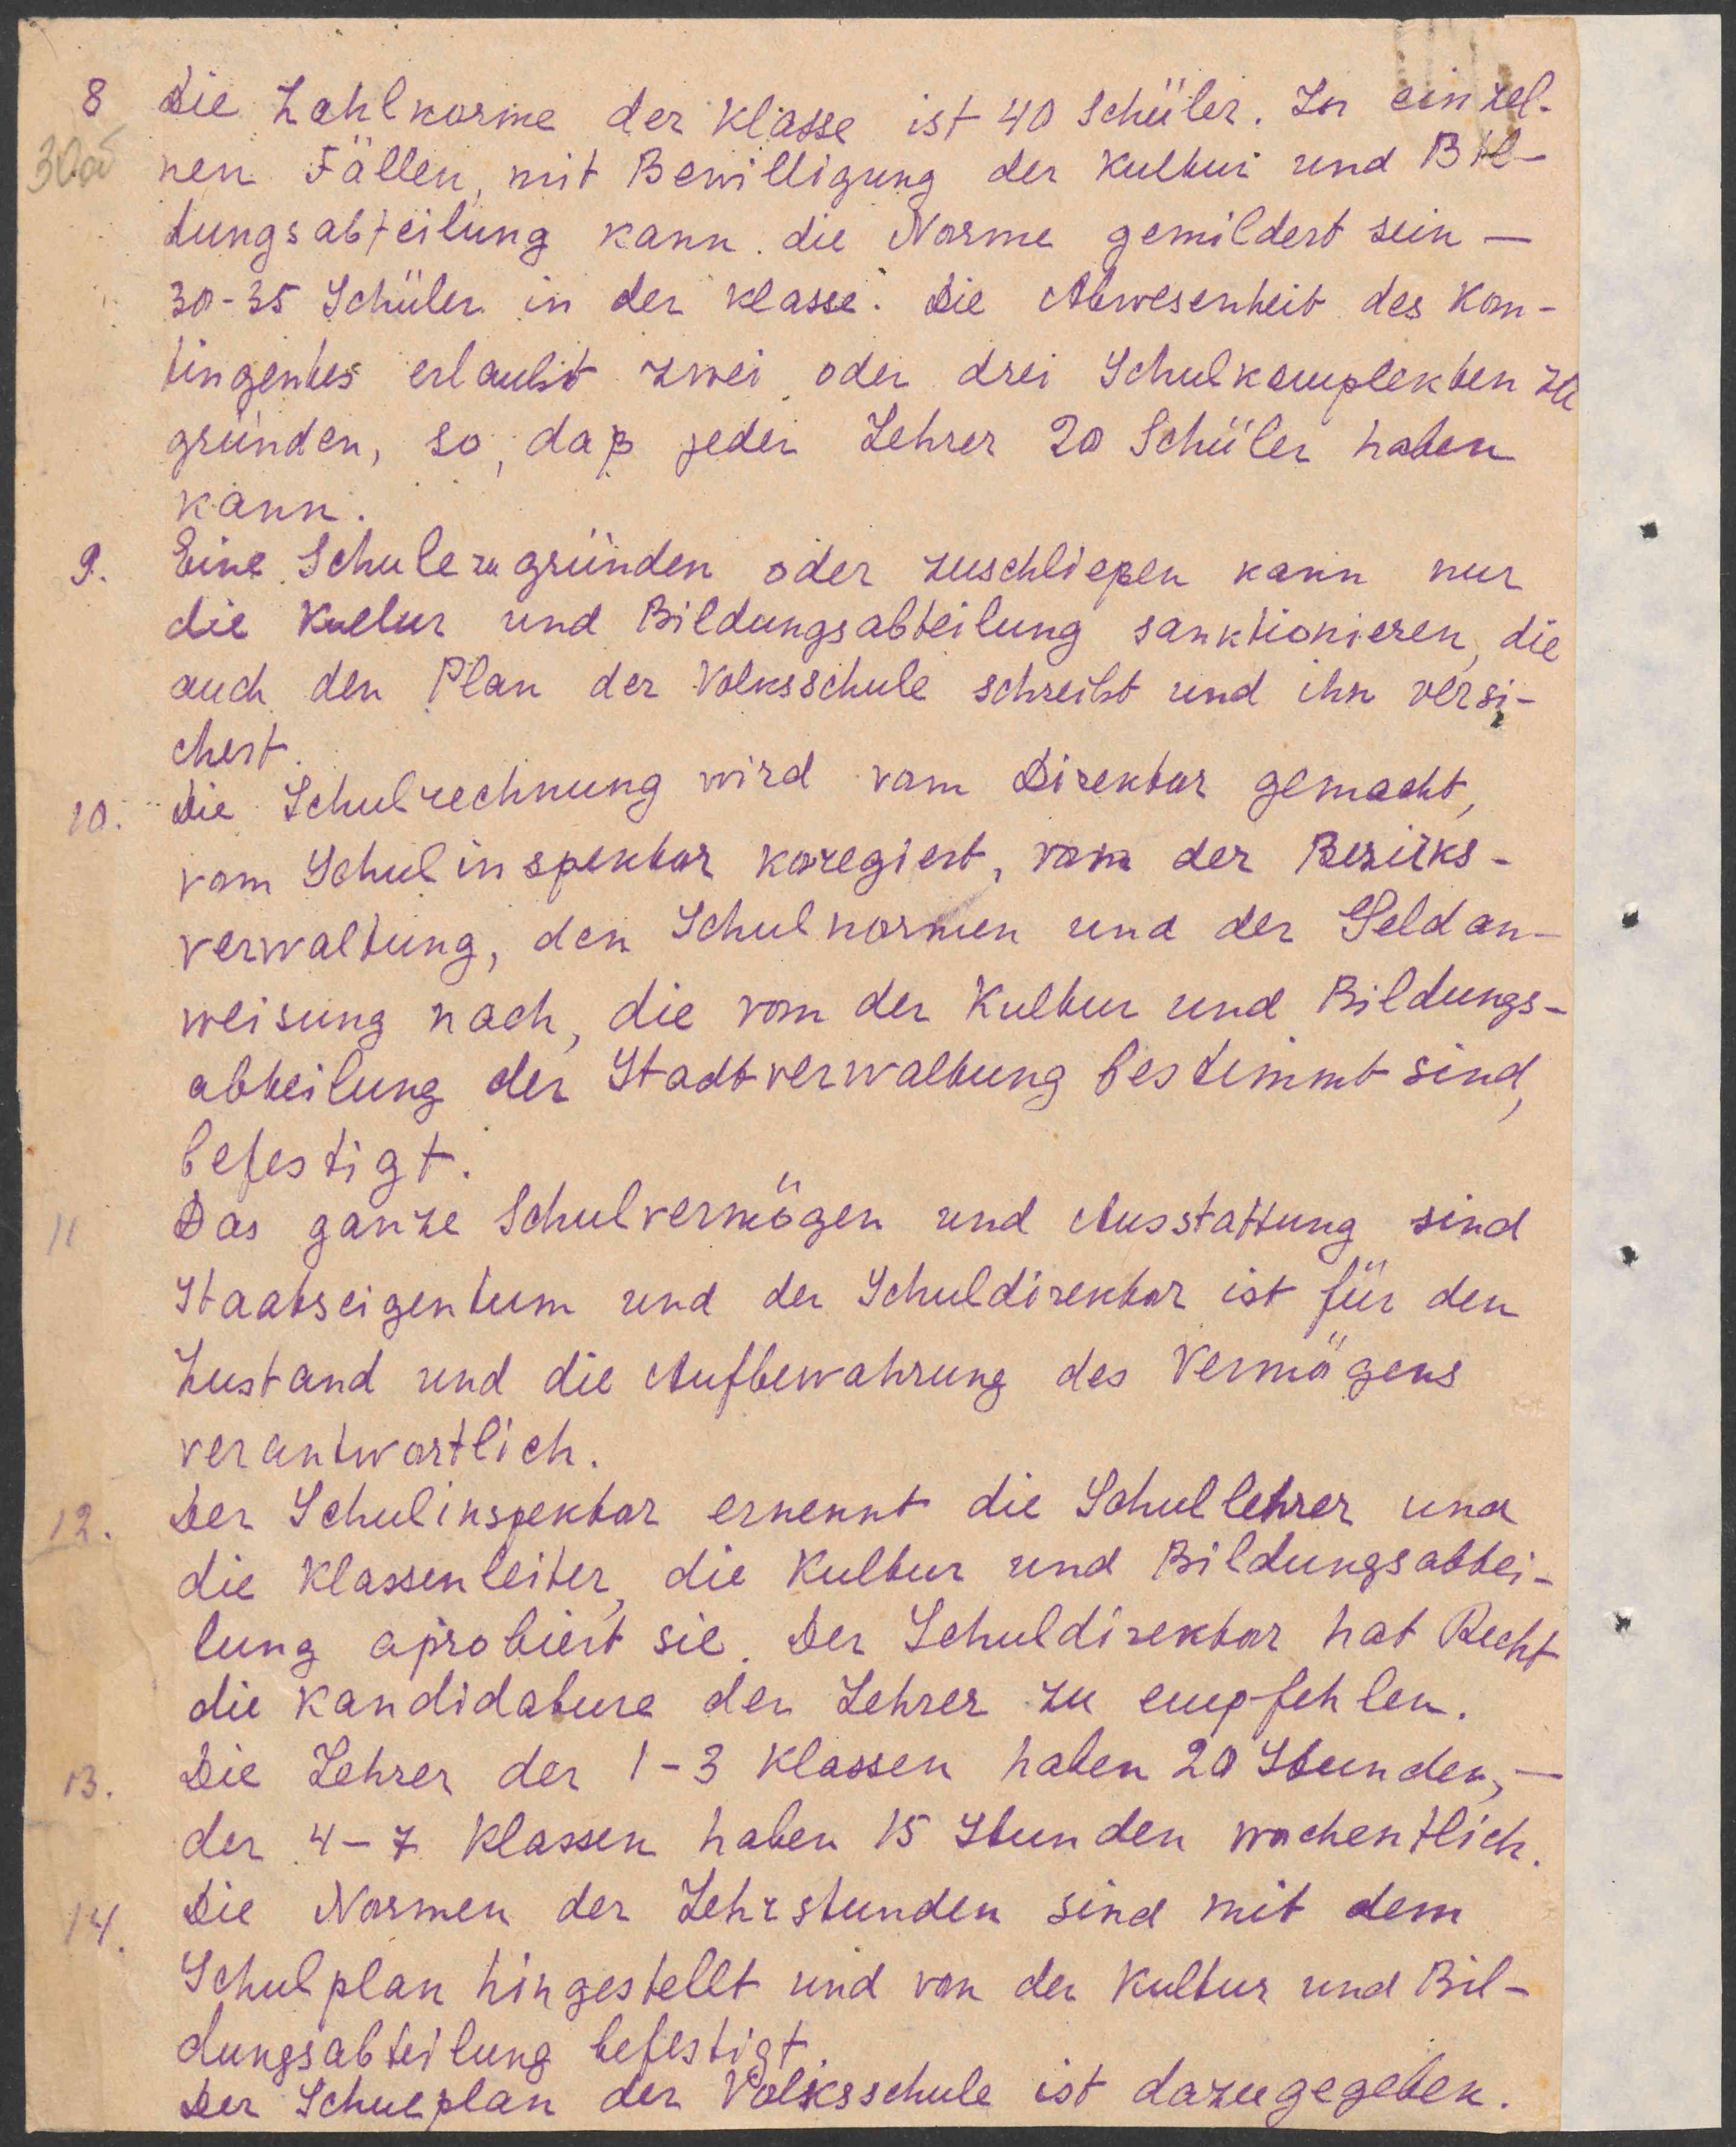 8 Die Zahlnorme der Klasse ist 40 Schüler. In einzel-
nen Fällen, mit Bewilligung der Kultur und Bil-
dungsabteilung kann die Norme gemildert sein —
30-35 Schüler in der Klasse. Die Abwesenheit des Kon-
tingentes erlaubt zwei oder drei Schulkomplekten zu
gründen, so, daß jeder Lehrer 20 Schüler haben
kann.
9. Eine Schule zu gründen oder zuschließen kann nur
die Kultur und Bildungsabteilung sanktionieren, die
auch den Plan der Volksschule schreibt und ihn versi-
chert.
10. Die Schulrechnung wird vom Direktor gemacht,
vom Schulinspektor koregiert, vom der Bezirks-
verwaltung, den Schulnormen und der Geldan-
weisung nach, die von der Kultur und Bildungs-
abteilung der Stadtverwaltung bestimmt sind,
befestigt.
11 Das ganze Schulvermögen und Ausstattung sind
Staatseigentum und der Schuldirektor ist für den
Zustand und die Aufbewahrung des Vermögens
verantwortlich.
12. Der Schulinspektor ernennt die Schullehrer und
die Klassenleiter, die Kultur und Bildungsabtei-
lung aprobiert sie. Der Schuldirektor hat Recht
die Kandidature der Lehrer zu empfehlen.
13. Die Lehrer der 1-3 Klassen haben 20 Stunden, —
der 4-7 Klassen haben 15 Stunden wochentlich.
14. Die Normen der Lehrstunden sind mit dem
Schulplan hingestellt und von der Kultur und Bil-
dungsabteilung befestigt.
Der Schulplan der Volksschule ist dazugegeben.